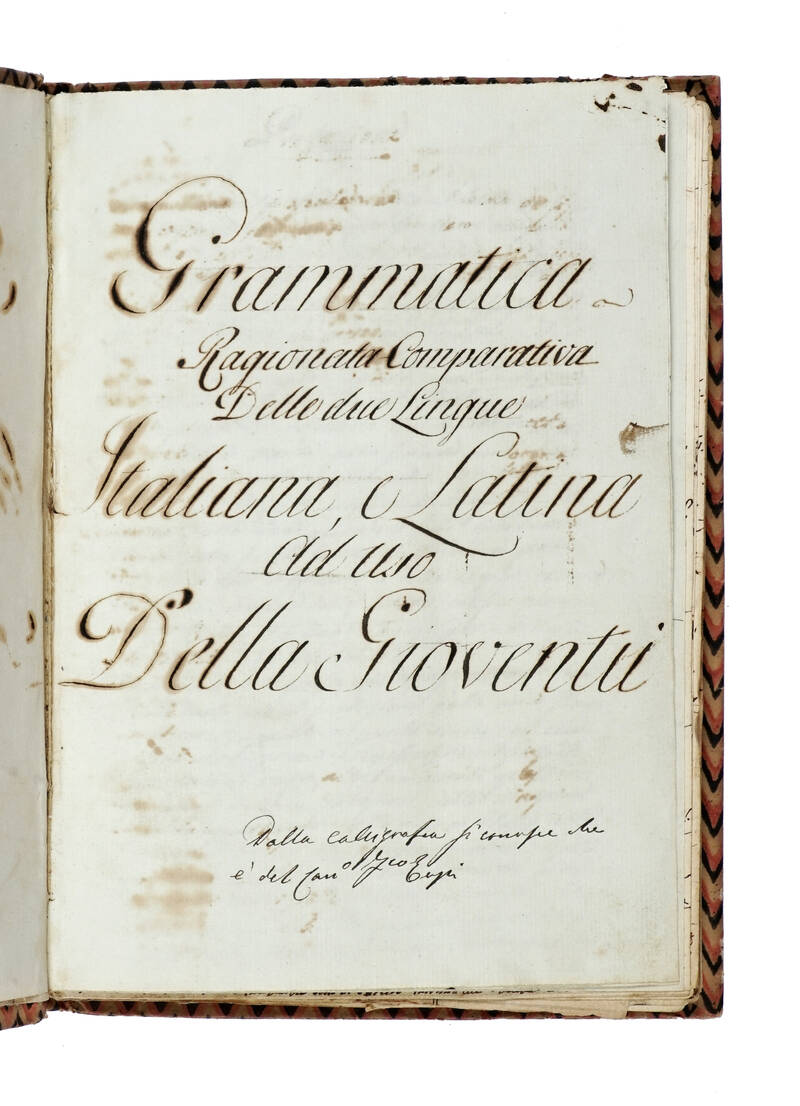 Grammatica
Ragionata Comparativa
Delle due Lingue
Italiana, e Latina
Ad uso
Della Gioventù
Dalla calligrafia si conosce che
è del Can.º